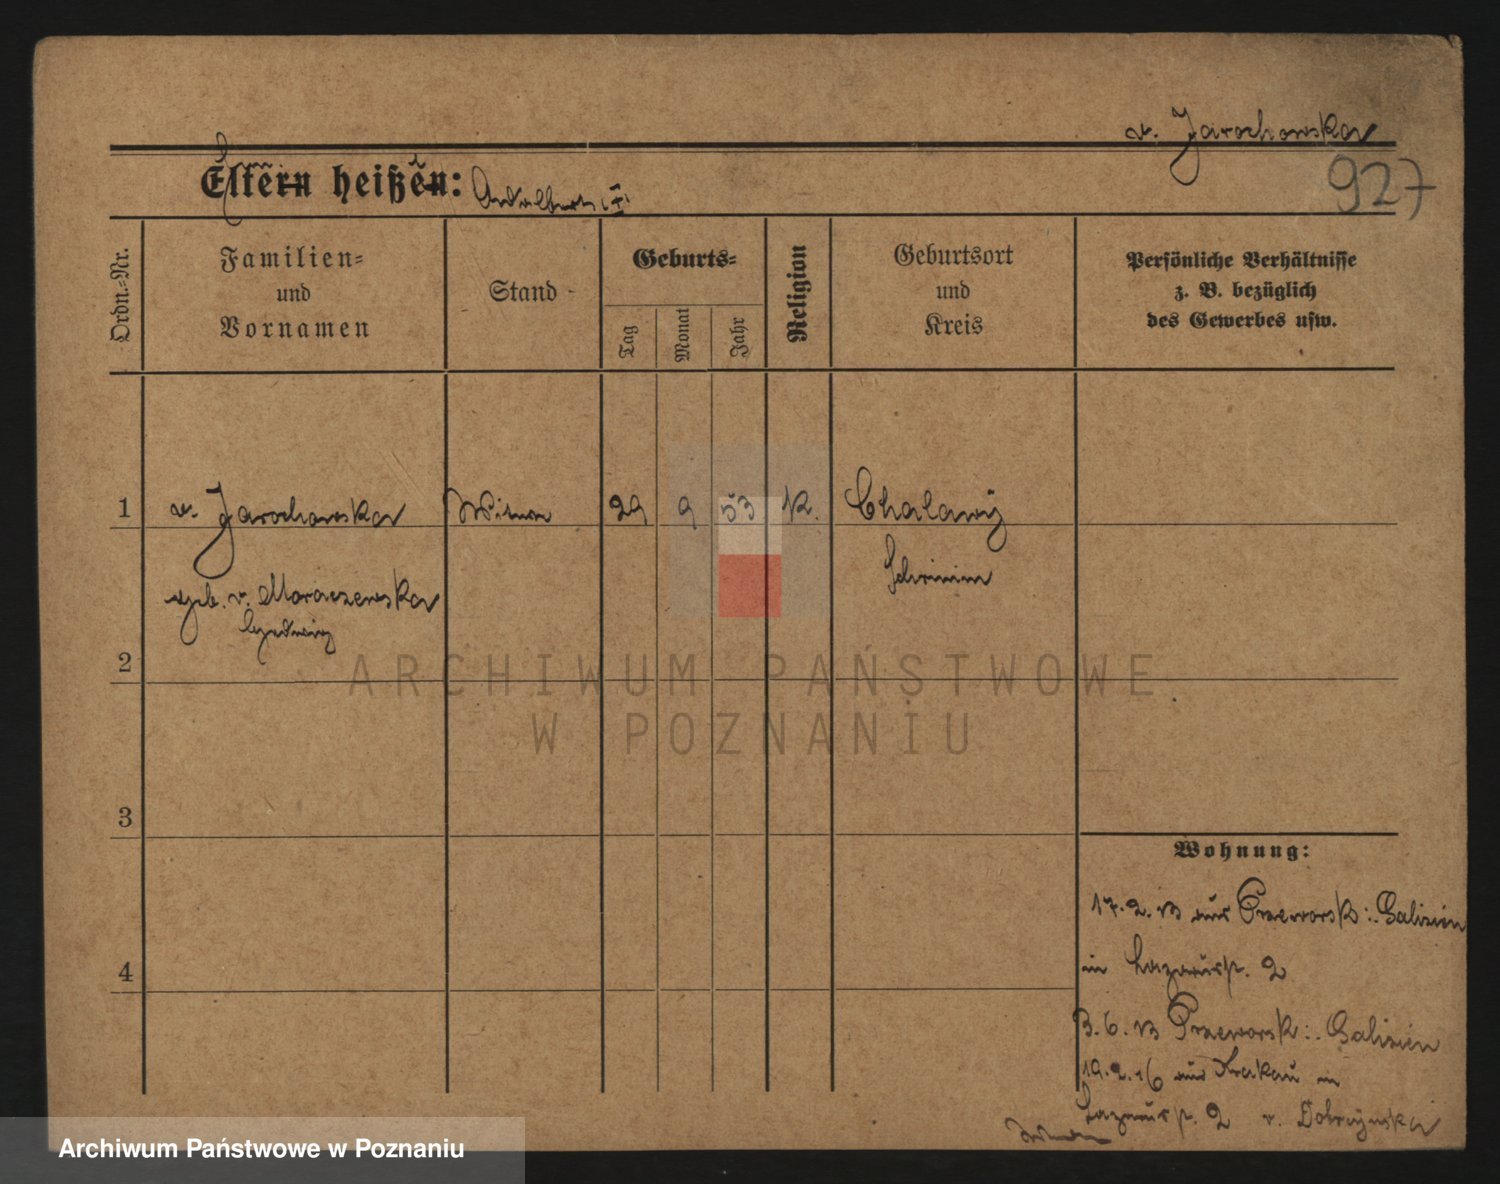 v. Jarochowska
927
Eltern heißen: Adalbert (†)
Ordn.=Nr.
Familien=
und
Vornamen
Stand
Geburts=
Tag
Monat
Jahr
Religion
Geburtsort
und
Kreis
Persönliche Verhältnisse
z. B. bezüglich
des Gewerbes usw.
1
v. Jarochowska
Witwe
29
9
53
k.
Chalawy
Schrimm
geb. v. Moraczewska
Hedwig
2
ARCHIWUM PAŃSTWOWE
W POZNANIU
3
Wohnung:
17.2.13 aus Przeworsk :. Galizien
4
in Lazarusstr. 2
3.6.13 Przeworsk :. Galizien
19.2.16 aus Krakau in
Lazarusstr. 2 v. Dobrzynska
Archiwum Państwowe w Poznaniu